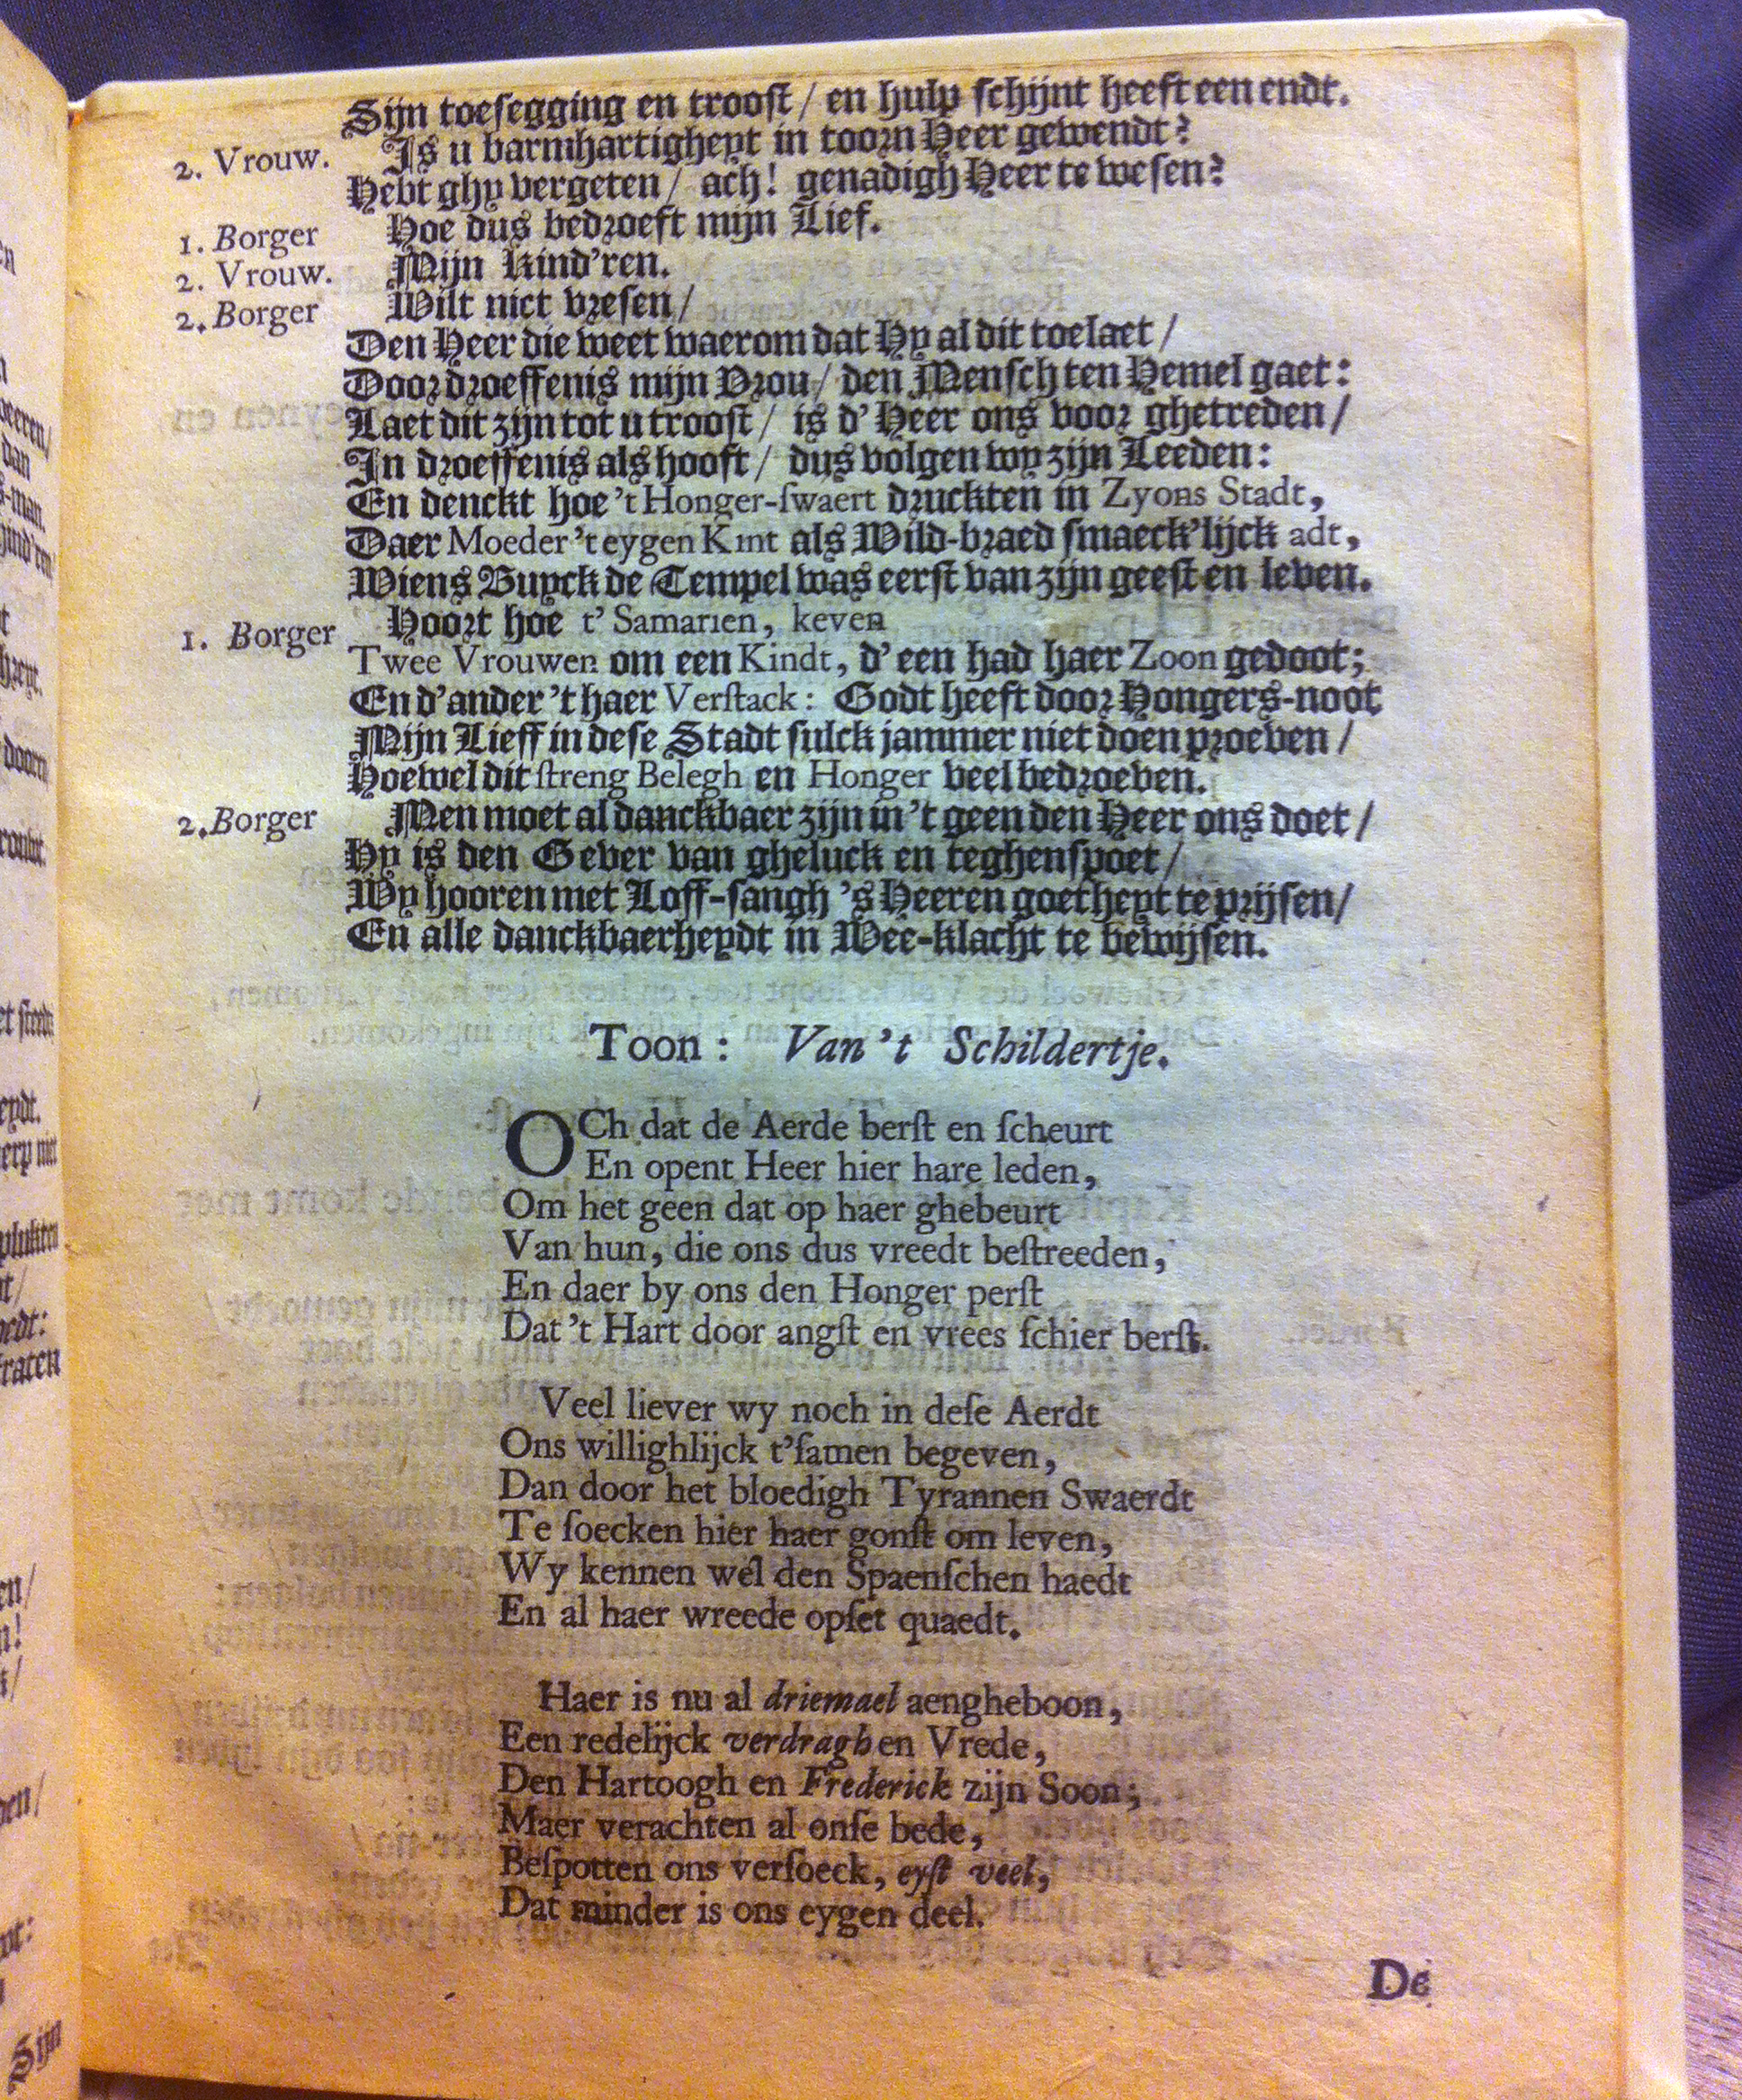 Sijn toesegging en troost / en hulp schijnt heeft een endt.
2. Vrouw. Is u barmhartigheyt in toorn Heer gewendt?
Hebt ghy vergeten / ach! genadigh Heer te wesen?
1. Borger Hoe dus bedroeft mijn Lief.
2. Vrouw. Mijn Kind'ren.
2. Borger Wilt niet vresen /
Den Heer die weet waerom dat Hy al dit toelaet /
Door droeffenis mijn Vrou / den Mensch ten Hemel gaet:
Laet dit zijn tot u troost / is d' Heer ons voor ghetreden /
In droeffenis als hooft / dus volgen wy zijn Leeden:
En denckt hoe 't Honger-swaert druckten in Zyons Stadt,
Daer Moeder 't eygen Kint als Wild-braed smaeck'lijck adt,
Wiens Buyck de Tempel was eerst van zijn geest en leven.
1. Borger Hoort hoe t' Samarien, keven
Twee Vrouwen om een Kindt, d' een had haer Zoon gedoot;
En d' ander 't haer Verstack: Godt heeft door Hongers-noot
Mijn Lieff in dese Stadt sulck jammer niet doen proeven /
Hoewel dit streng Belegh en Honger veel bedroeven.
2. Borger Men moet al danckbaer zijn in 't geen den Heer ons doet /
Hy is den Gever van gheluck en teghenspoet /
Wy hooren met Loff-sangh 's Heeren goetheyt te prijsen /
En alle danckbaerheydt in Wee-klacht te bewijsen.
Toon: Van 't Schildertje.
OCh dat de Aerde berst en scheurt
En opent Heer hier hare leden,
Om het geen dat op haer ghebeurt
Van hun, die ons dus vreedt bestreeden,
En daer by ons den Honger perst
Dat 't Hart door angst en vrees schier berst.
Veel liever wy noch in dese Aerdt
Ons willighlijck t'samen begeven,
Dan door het bloedigh Tyrannen Swaerdt
Te soecken hier haer gonst om leven,
Wy kennen wel den Spaenschen haedt
En al haer wreede opset quaedt.
Haer is nu al driemael aengheboon,
Een redelijck verdragh en Vrede,
Den Hartoogh en Frederick zijn Soon;
Maer verachten al onse bede,
Bespotten ons versoeck, eyst veel,
Dat minder is ons eygen deel.
De